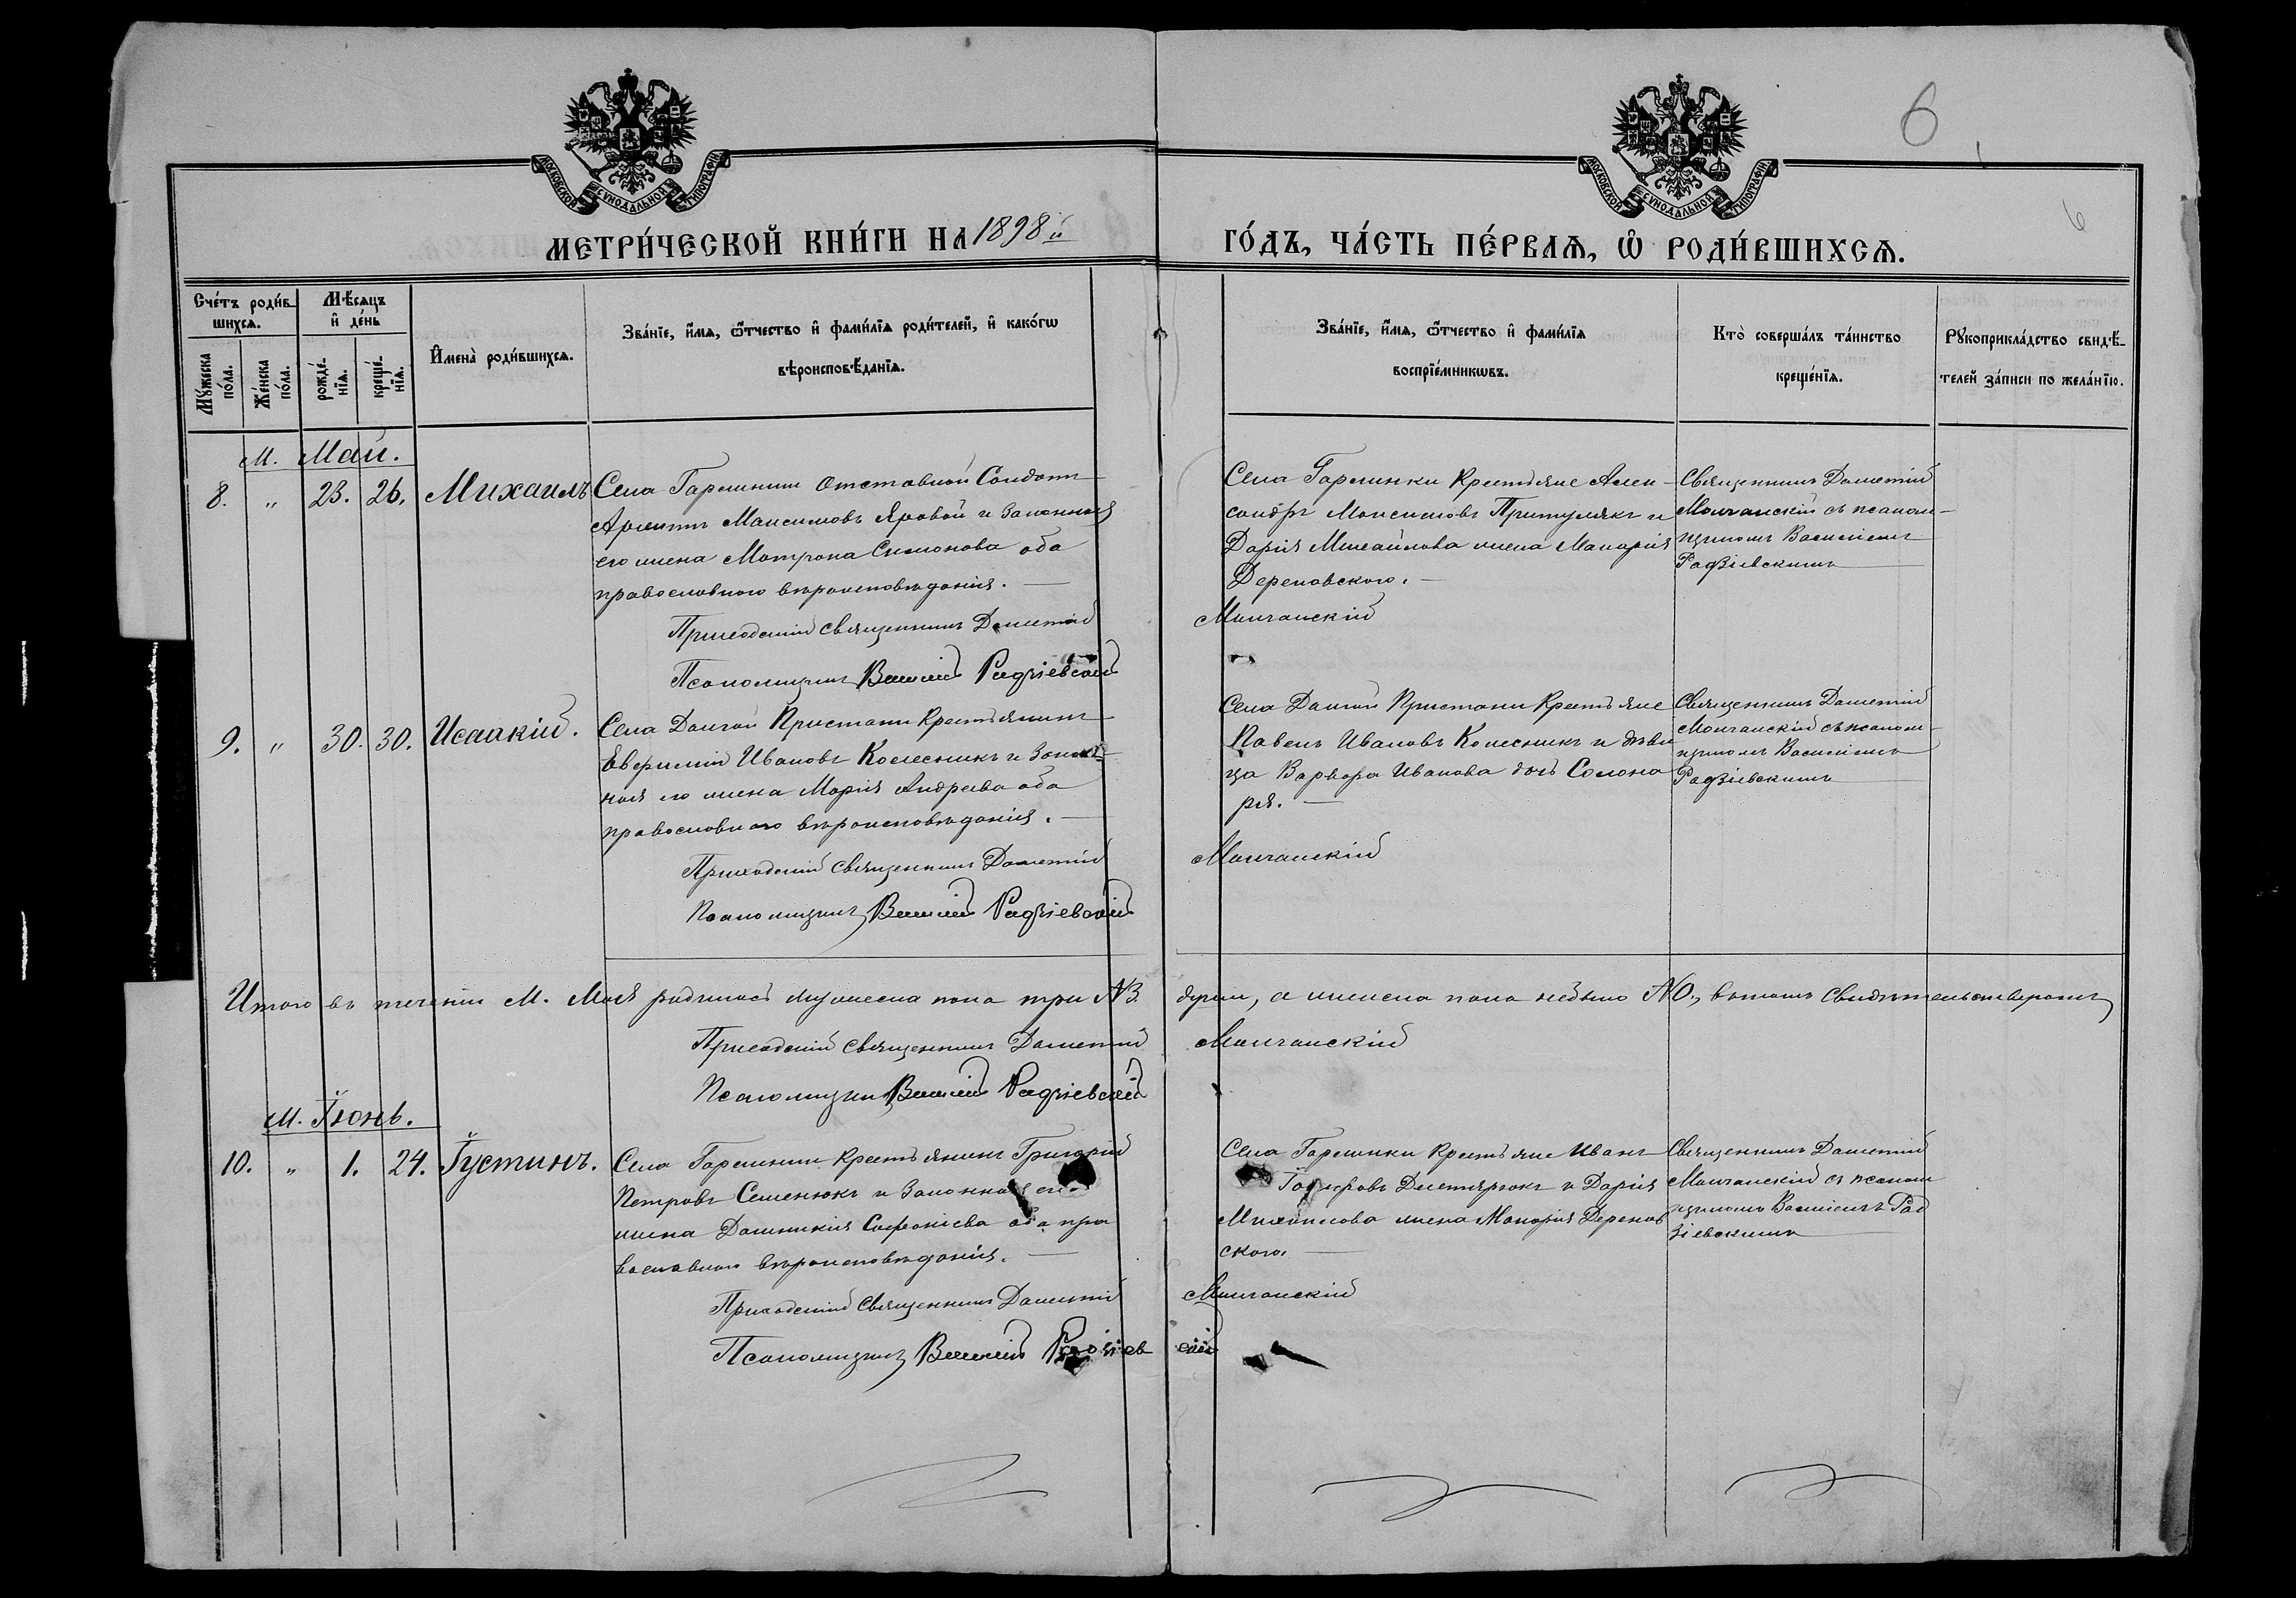 6
6
МОСКОВСКОЙ СУНОДАЛЬНОЙ ТИПОГРАФІИ.
МОСКОВСКОЙ СУНОДАЛЬНОЙ ТИПОГРАФІИ.
МЕТРИ́ЧЕСКОЙ КНИ́ГИ НА 1898й
ГО́ДЪ, ЧА́СТЬ ПЕ́РВАѦ, Ѡ РОДИ́ВШИХСѦ.
Сче́тъ роди́в-
шихсѧ.
Мѣ́сѧцъ
и҆ де́нь
Мꙋ́жеска по́ла.
Же́нска по́ла.
рожде́-
нїѧ.
креще́-
нїѧ.
И҆мена̀ роди́вшихсѧ.
Зва́нїе, и҆́мѧ, ѻ҆́тчество и҆ фами́лїѧ роди́телей, и҆ како́гѡ
вѣроисповѣ́данїѧ.
Зва́нїе, и҆́мѧ, ѻ҆́тчество и҆ фами́лїѧ
воспрїе́мникѡвъ.
Кто̀ соверша́лъ та́инство
креще́нїѧ.
Рꙋкоприкла́дство свидѣ́-
телей за́писи по жела́нїю.
М. Май.
8. " 23. 26. Михаилъ
Села Отставной Солдатъ
Максимовъ Яровой и Законная
его жена Матрона Симонова оба
православного вѣроисповѣданія. —
Приходскій Священникъ Дометій
Псаломщикъ Василій Радзіевскій
Села Крестьяне Алек-
сандръ Максимовъ Притулякъ и
Дарія Михайлова жена Макарія
Дереновского. —
Молчанскій
Священникъ Дометій
Молчанскій съ псалом-
щикомъ Василіемъ
Радзіевскимъ
9. " 30. 30. Исаакій.
Села Долгой Пристани Крестьянинъ
Евфимій Ивановъ Колесникъ и Закон-
ная его жена Марія Андреева оба
православного вѣроисповѣданія. —
Приходскій Священникъ Дометій
Псаломщикъ Василій Радзіевскій
Села Долгой Пристани Крестьяне
Павелъ Ивановъ Колесникъ и дѣви
ца Варвара Иванова дочь Солона
ря. —
Молчанскій
Священникъ Дометій
Молчанскій съ псалом-
щикомъ Василіемъ
Радзіевскимъ
Итого въ теченіи М. Мая родилось мужеска пола три №3. души, а женска пола небыло №0., вътомъ Свидѣтельствуютъ
Приходскій Священникъ Дометій Молчанскій
Псаломщикъ Василій Радзіевскій
М. Їюнь.
10. " 1. 24. Їустинъ.
Села Крестьянинъ Григорій
Петровъ Семенюкъ и Законная его
жена Домникія Софоніева оба пра
вославного вѣроисповѣданія. —
Приходскій Священникъ Дометій
Псаломщикъ Василій Радзіевскій
Села Крестьяне Иванъ
Дмитрюкъ и Дарія
Михайлова жена Макарія Деренов
ского. —
Молчанскій
Священникъ Дометій
Молчанскій съ псалом
щикомъ Василіемъ Рад
зіевскимъ